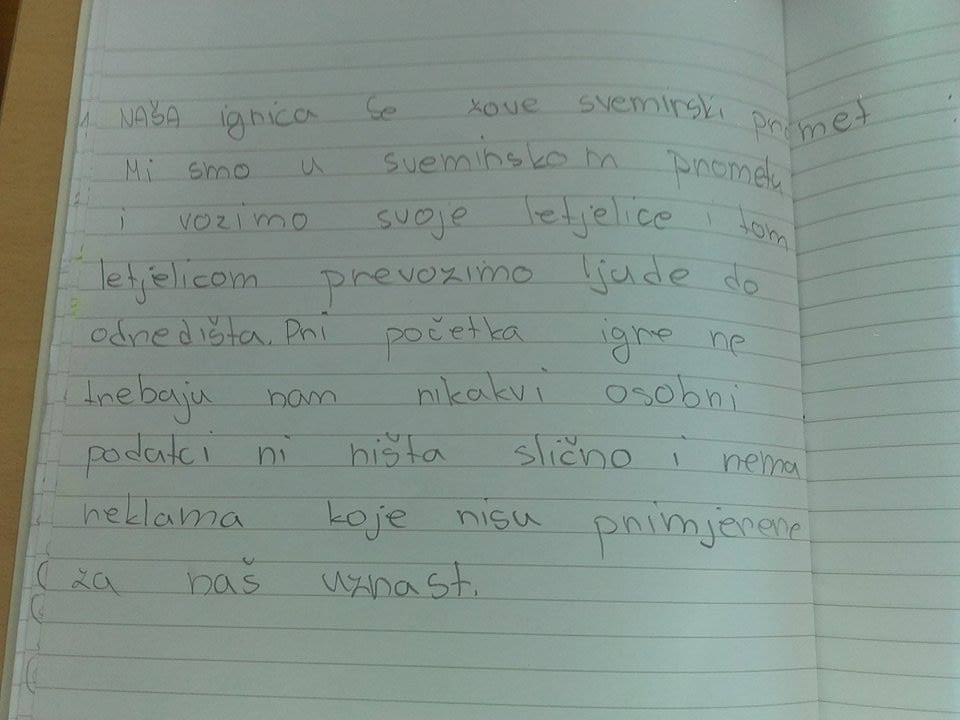 NAŠA igrica se zove svemirski promet
Mi smo u svemirskom prometu
i vozimo svoje letjelice i tom
letjelicom prevozimo ljude do
odredišta. Pri početka igre ne
trebaju nam nikakvi osobni
podatci ni ništa slično i nema
reklama koje nisu primjerene
za naš uzrast.